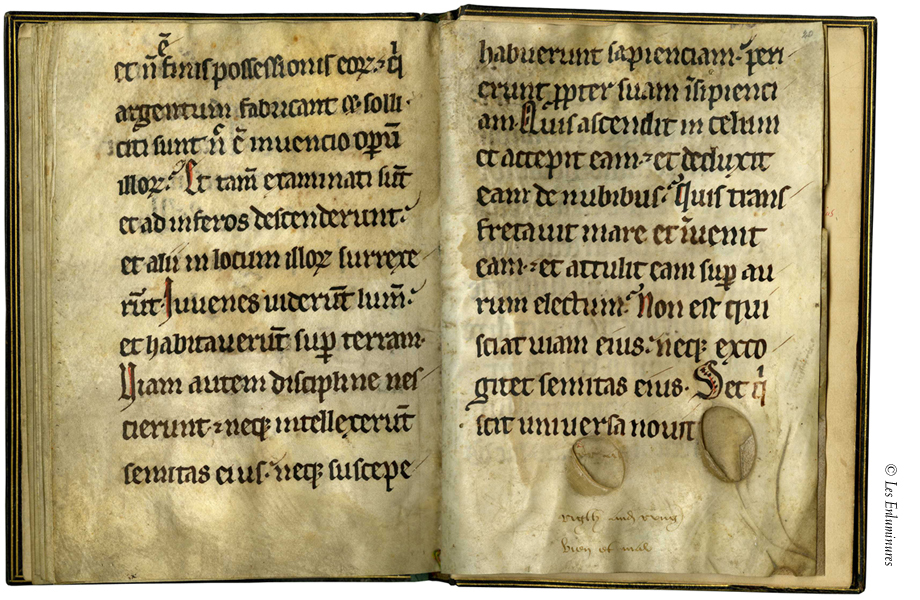 et n̄ ē finis possessionis eoꝝ · ⁊ q̄i
argentum fabricant et solli·
citi sunt n̄ ē inuencio opeꝝ̄
illoꝝ. Et tam̄ exaa minati sūt
et ad inferos descenderunt·
et alii in locum illoꝝ surrexe
rūt· Iuuenes uiderūt lum̄·
et habitauerūt suꝑ terram·
Uiam autem discipline nes
cierunt· ⁊ neqꝫ intellexerūt
semitas eius· neqꝫ suscepe
20
habuerunt sapienciam· ꝑeri
erunt ꝓpter suam īsipienci
am· Quis ascendit in celum
et accepit eam· ⁊ et deduxit
eam de nubibus· Quis trans
fretauit mare et īuenit
eam· ⁊ et attulit eam suꝑ au
rum electum· Non est qui
sciat uiam eius· neqꝫ exco
gitet semitas eius· Set q̄i
scit uniuersa nouit
rygth and rong
bien et mal
© Les Enluminures